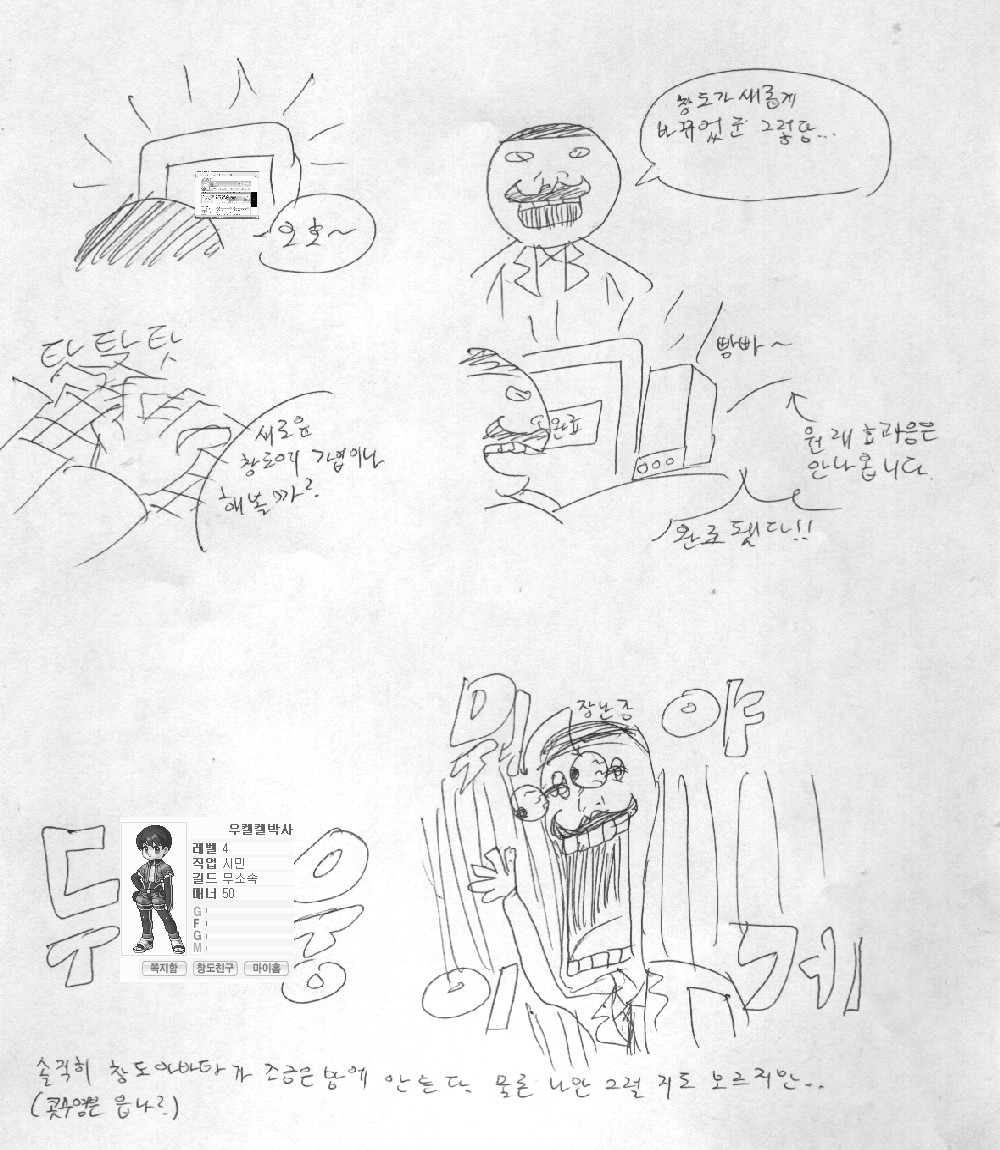 오호~
창도가 새롭게
바뀌었군 그렇담...
탓 탓 탓
새로운
창도에 가입이나
해볼까?
완료
빰빠~
원래 효과음은
안나옵니다.
완료됐다!!
두웅
우켈켈박사
레벨 4
직업 시민
길드 무소속
매너 50
G
F
G
M
쪽지함 창도친구 마이홈
뭐야
장난중
이게
솔직히 창도아바타가 조금은 맘에 안든다. 물론 나만 그럴 지도 모르지만..
(콧수염은 읍나?)